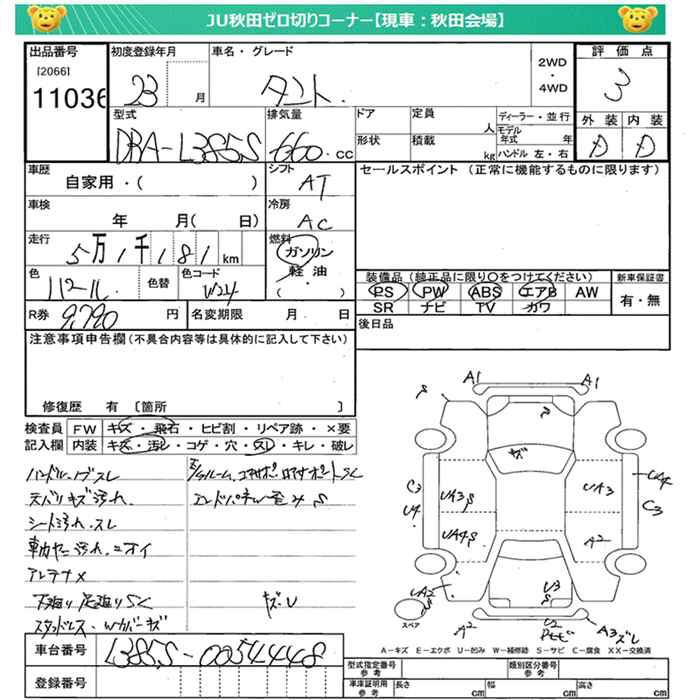 JU秋田ゼロ切りコーナー【現車：秋田会場】
出品番号
[2066]
11036
初度登録年月
23 月
車名・グレード
タント.
2WD
・
4WD
評価点
3
外装 内装
D D
型式
DBA-L385S
排気量
660 cc
ドア
定員
人
形状
積載
kg
ディーラー・並行
モデル年式 年
ハンドル 左・右
車歴
自家用・( )
シフト
AT
セールスポイント (正常に機能するものに限ります)
車検
年 月( 日)
冷房
AC
走行
5万1千181km
燃料
ガソリン
軽油
( )
色
パール
色替
色コード
W24
装備品 (純正品に限り○をつけてください)
PS PW ABS エアB AW
SR ナビ TV カワ
新車保証書
有・無
R券
9,790 円
名変期限 月 日
後日品
注意事項申告欄(不具合内容等は具体的に記入して下さい)
修復歴 有 〔箇所 〕
検査員
記入欄
FW キズ・飛石・ヒビ割・リペア跡・×要
内装 キズ・汚レ・コゲ・穴・スレ・キレ・破レ
ハンドル・ノブスレ
天バリキズ汚れ
シート汚れ・スレ
アンテナ×
下廻り足廻りSC
スタッドレス・Wカバーキズ
エンドパネル歪み S
キズU
S
A1
A1
キズ
C3
U4
UA3 S
UA3
UA4
C3
UA4 S
A2
UA2
S
U3
S
スペア
A2
U2
A3ズレ
A－キズ E－エクボ U－凹み W－補修跡 S－サビ C－腐食 XX－交換済
車台番号
L385S-0054448
登録番号
型式指定番号
参考
類別区分番号
参考
車庫証明用
参考
長さ cm
幅 cm
高さ cm